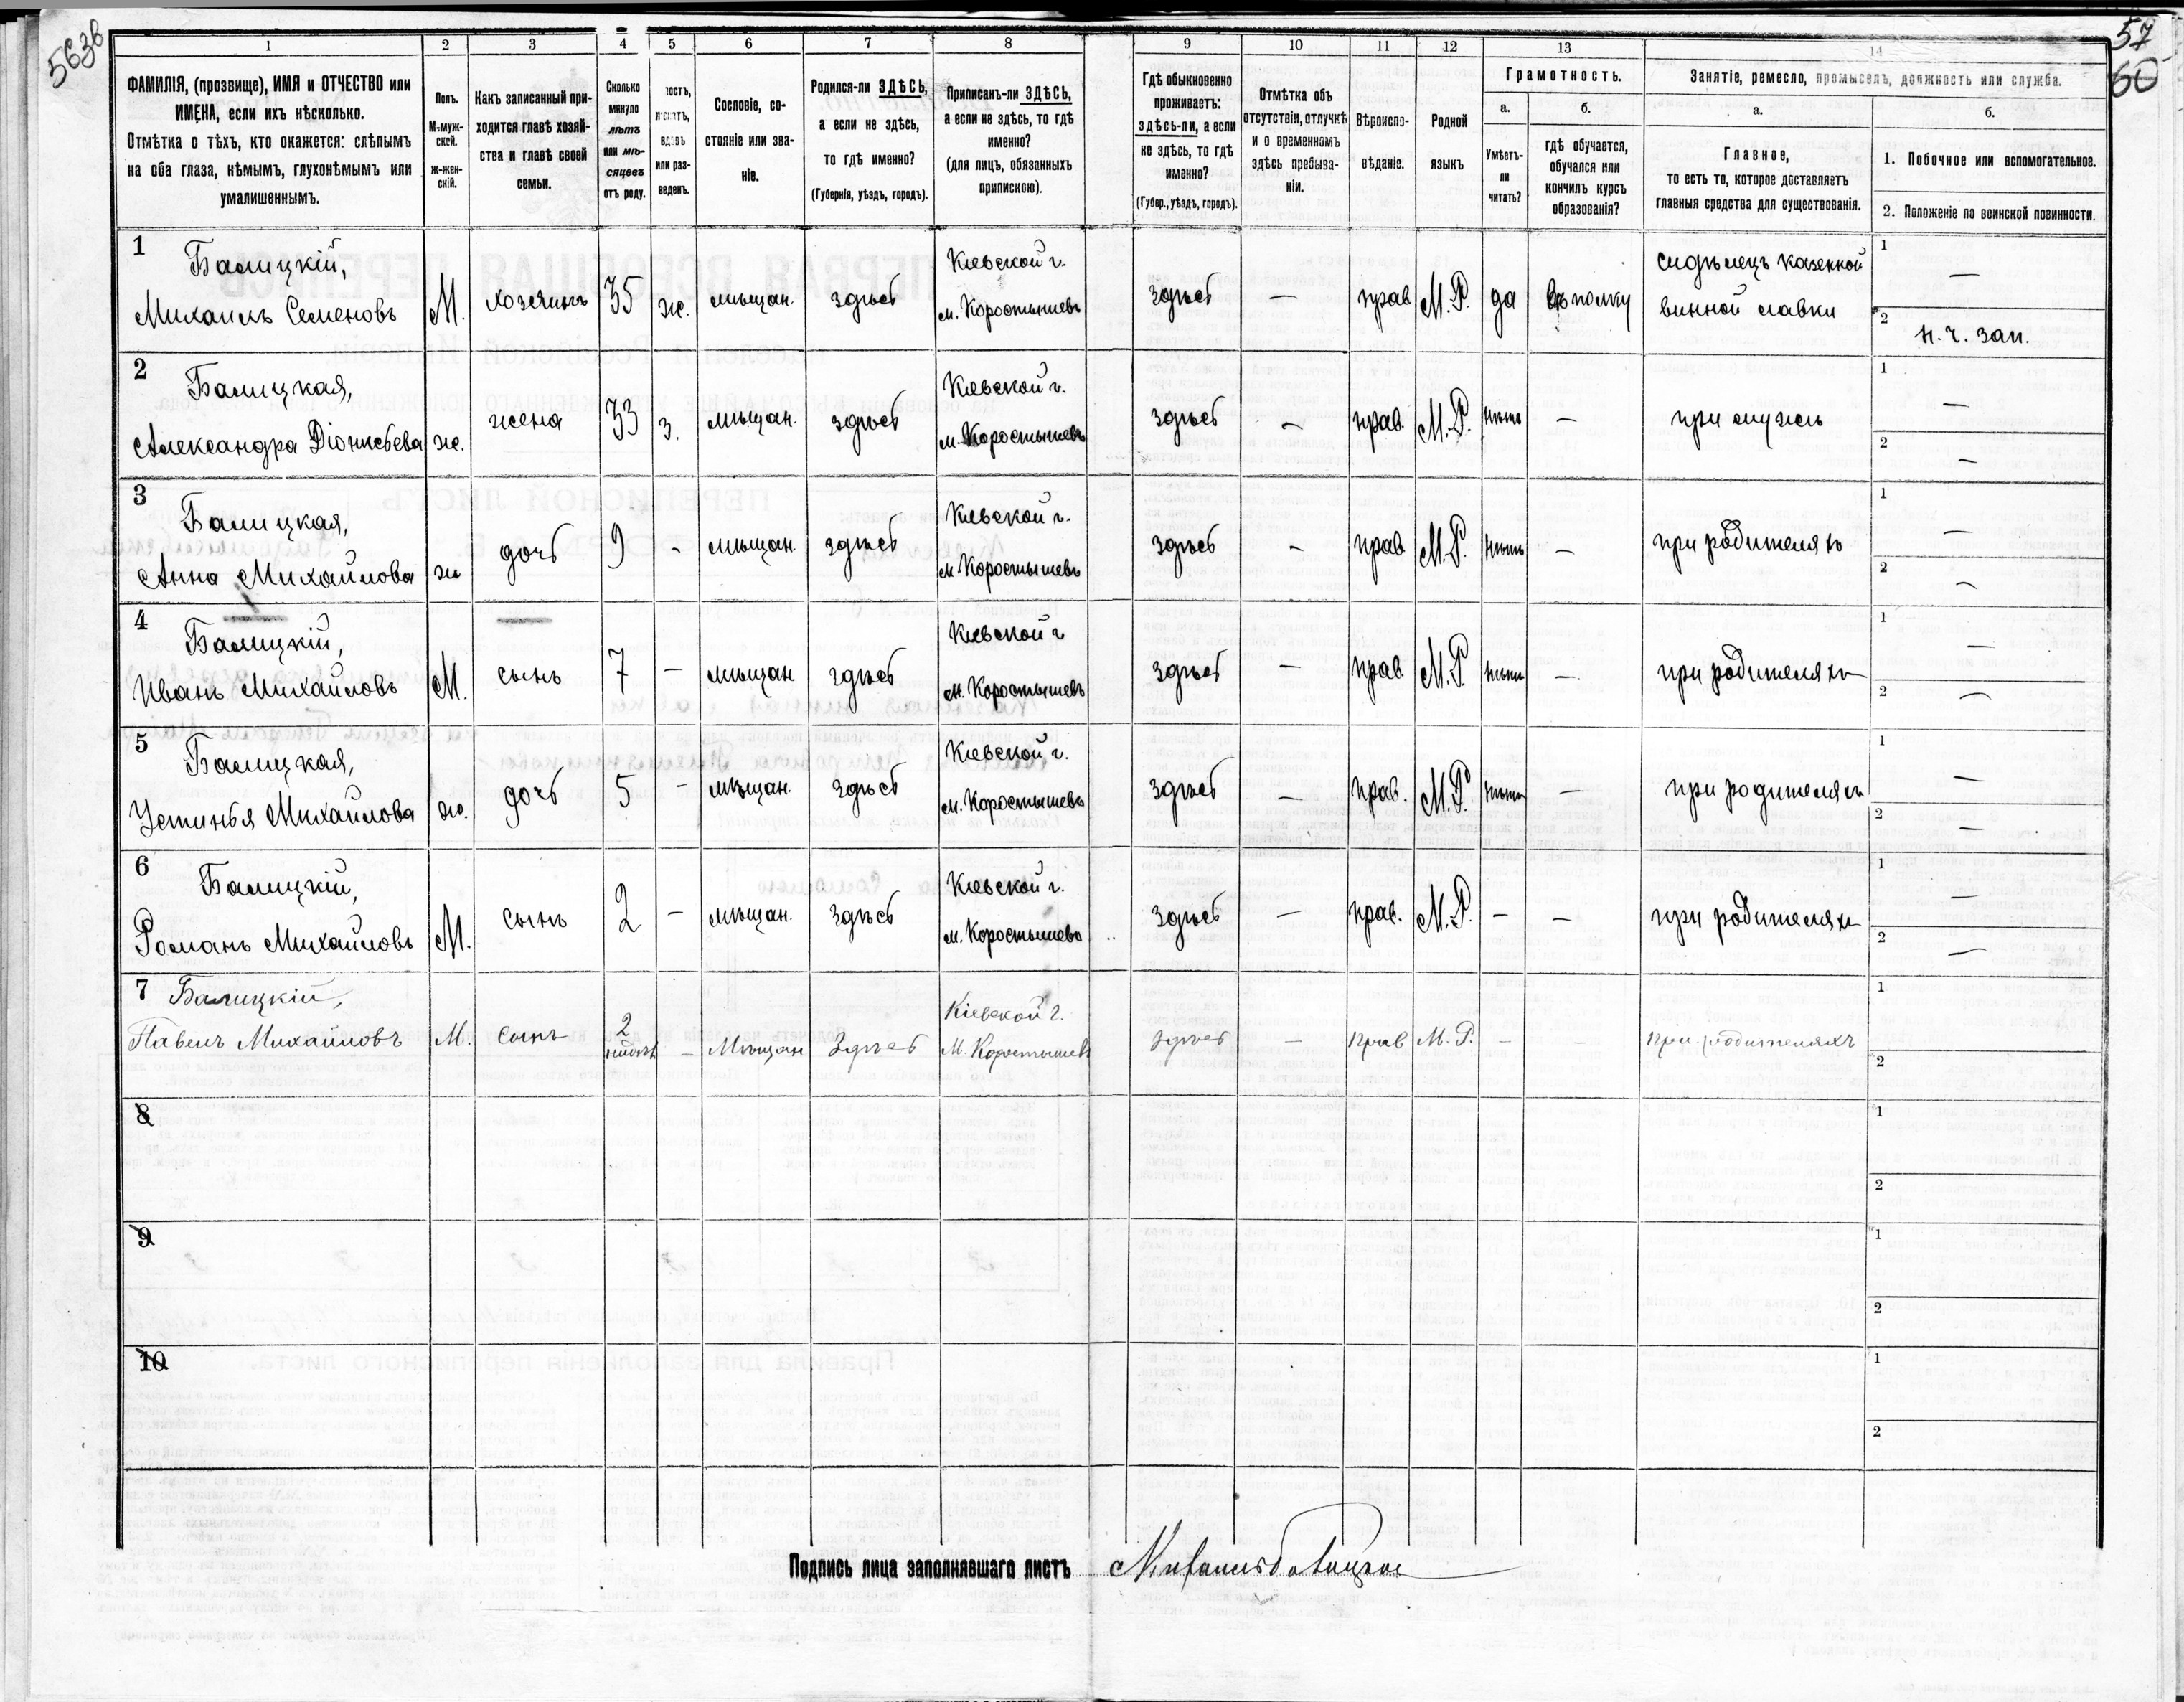 563б
57
60
1 2 3 4 5 6 7 8 9 10 11 12 13 14
ФАМИЛІЯ, (прозвище), ИМЯ и ОТЧЕСТВО или
ИМЕНА, если ихъ нѣсколько.
Отмѣтка о тѣхъ, кто окажется: слѣпымъ
на оба глаза, нѣмымъ, глухонѣмымъ или
умалишеннымъ.
Полъ.
М-муж-
ской.
ж-жен-
скій.
Какъ записанный при-
ходится главѣ хозяй-
ства и главѣ своей
семьи.
Сколько
минуло
лѣтъ
или мѣ-
сяцевъ
отъ роду.
или раз-
веденъ.
Сословіе, со-
стояніе или зва-
ніе.
Родился-ли ЗДѢСЬ,
а если не здѣсь,
то гдѣ именно?
(Губернія, уѣздъ, городъ).
Приписанъ-ли ЗДѢСЬ,
а если не здѣсь, то гдѣ
именно?
(для лицъ, обязанныхъ
припискою).
Гдѣ обыкновенно
проживаетъ:
здѣсь-ли, а если
не здѣсь, то гдѣ
именно?
(Губер., уѣздъ, городъ).
Отмѣтка объ
отсутствіи, отлучкѣ
и о временномъ
здѣсь пребыва-
ніи.
Вѣроиспо-
вѣданіе.
Родной
языкъ
Грамотность.
а.
Умѣетъ-
ли
читать?
б.
гдѣ обучается,
обучался или
кончилъ курсъ
образованія?
Занятіе, ремесло, промыселъ, должность или служба.
а.
Главное,
то есть то, которое доставляетъ
главныя средства для существованія.
б.
1. Побочное или вспомогательное.
2. Положеніе по воинской повинности.
1
Балицкій,
Михаилъ Семеновъ
М. хозяинъ 35 ж. мѣщан. здѣсь
Кіевской г.
м. Коростышевъ
здѣсь — прав М.Р. да въ полку
сидѣлецъ казенной
винной лавки
1 —
2 н. ч. зап.
2
Балицкая,
Александра Діонисьева
ж. жена 33 з. мѣщан. здѣсь
Кіевской г.
м. Коростышевъ
здѣсь — прав. М.Р. нѣтъ — при мужѣ
1 —
2 —
3
Балицкая,
Анна Михайлова
ж дочь 9 - мѣщан. здѣсь
Кіевской г.
м Коростышевъ
здѣсь — прав. М.Р. нѣтъ — при родителяхъ
1 —
2 —
4
Балицкій,
Иванъ Михайловъ
М. сынъ 7 — мѣщан здѣсь
Кіевской г
м. Коростышевъ
здѣсь — прав. М.Р нѣтъ — при родителяхъ
1 —
2 —
5
Балицкая,
Устинья Михайлова
ж. дочь 5 - мѣщан. здѣсь
Кіевской г.
м. Коростышевъ
здѣсь — прав. М.Р. нѣтъ — при родителяхъ
1 —
2 —
6
Балицкій,
Романъ Михайловъ
М. сынъ 2 — мѣщан. здѣсь
Кіевской г.
м. Коростышевъ
здѣсь — прав. М.Р. - — при родителяхъ
1 —
2 —
7
Балицкій,
Павелъ Михайловъ
М. сынъ 2 — Мѣщан Здѣсь
Кіевской г.
М. Коростышевъ
здѣсь — Прав М.Р. - - при родителяхъ
1
2
8
1
2
9
1
2
10
1
2
Подпись лица заполнявшаго листъ